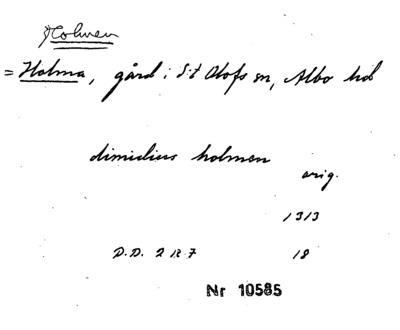 Holmen
= Holma, gård i S:t Olofs sn, Albo hd
dimidius holmen
orig.
1313
D.D. 2 R 7 18
Nr 10585